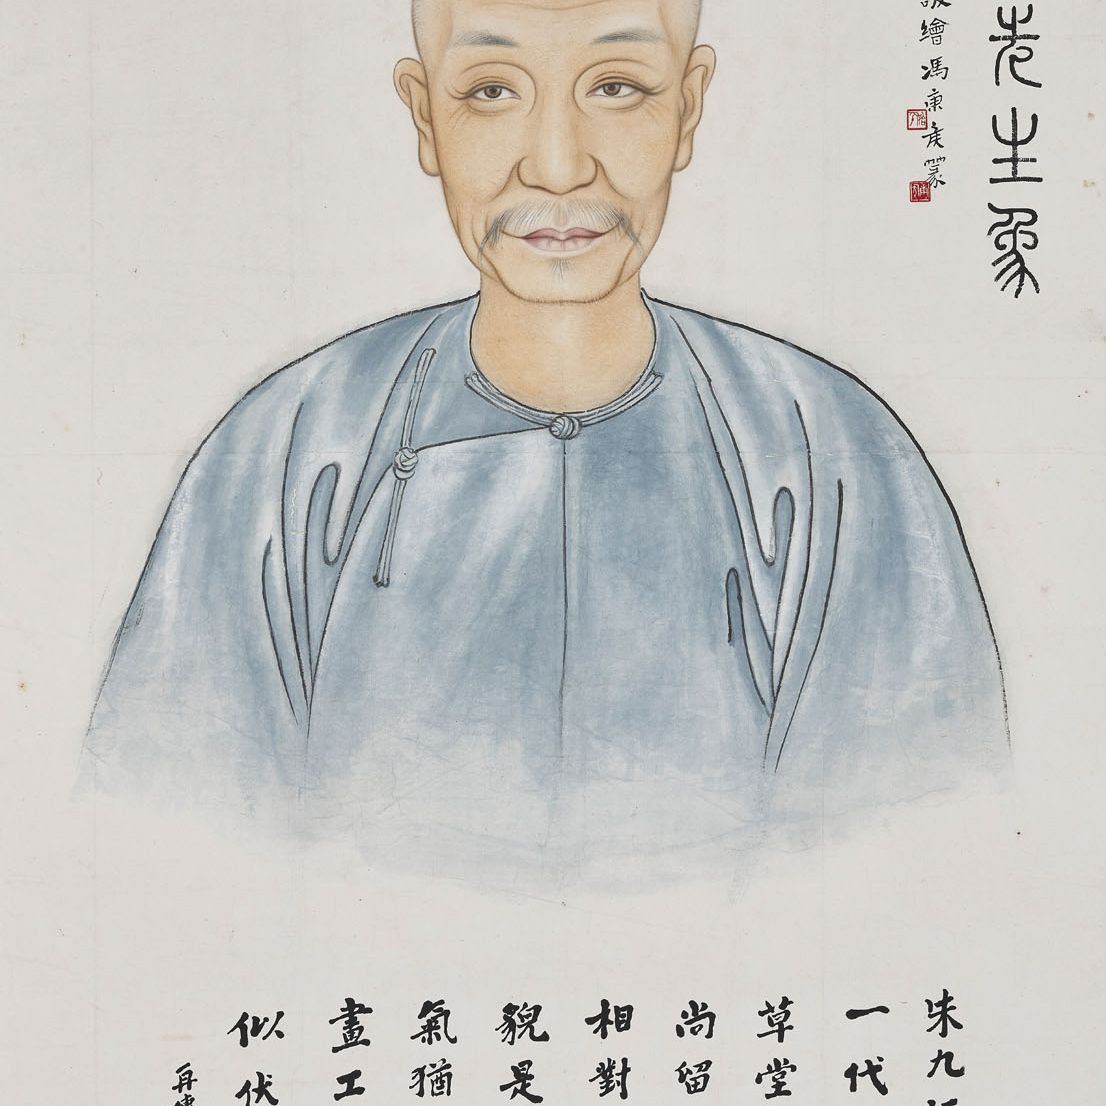 先生象
敬繪馮康侯篆
朱九
一代
草堂
尚留
相對
貌是
氣猶
畫工
似伏
再